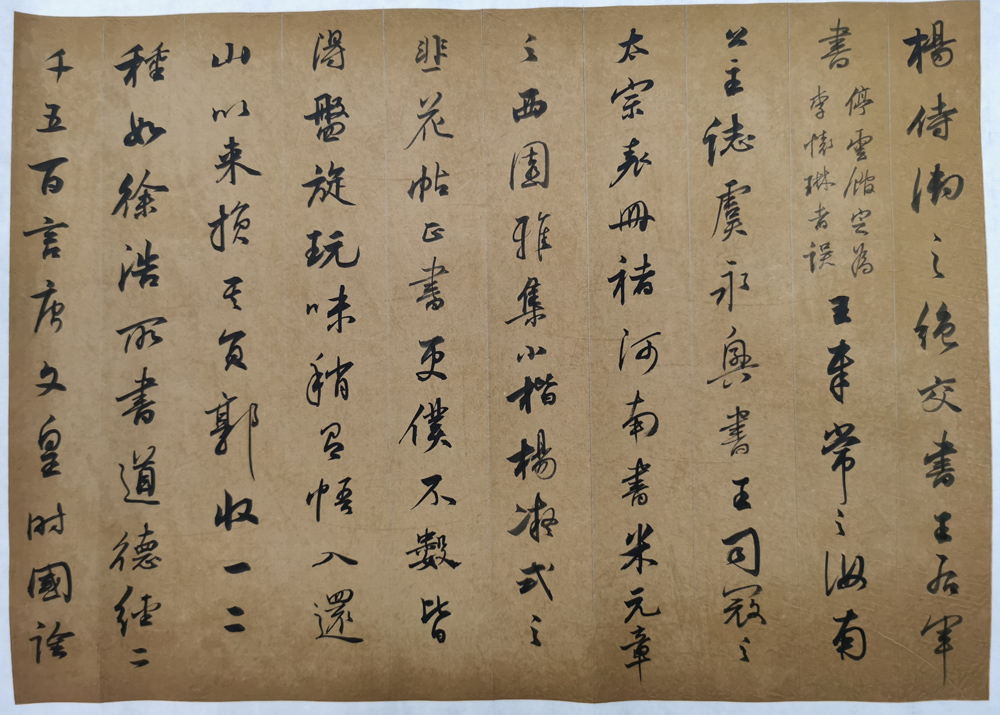 楊侍御之絶交書王右軍
書
停雲館定為
李懐琳者誤
王奉常之汝南
公主誌虞永興書王司寇之
太宗哀冊褚河南書米元章
之西園雅集小楷楊凝式之
韭花帖正書更僕不數皆
得盤旋玩味稍有悟入還
山以来損其負郭收一二
種如徐浩所書道德經二
千五百言唐文皇時國詮